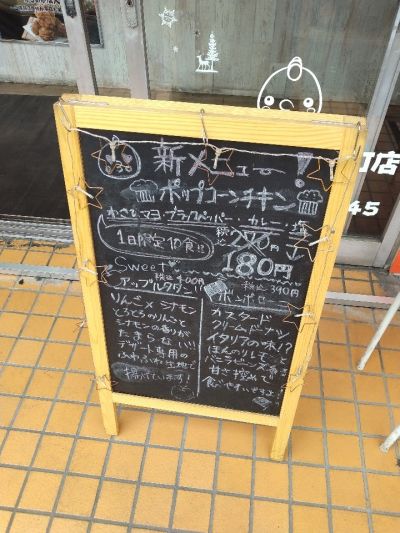 新メニュー!
ポップコーンチキン
わさびマヨ・ブラックペッパー・カレー・塩
税込
290円
1日限定10食!!
180円
Sweet
税込400円
アップルクター
税込390円
ボンボローネ
りんご×シナモン
とろとろのりんごと
シナモンの香りが
たまらない!!
デザート専用の
ふわふわ生地で
揚げています!
カスタード
クリームドーナツ
イタリアの味!?
ほんのりレモンと
バニラビーンズ香る
甘さ控えめで
食べやすいですよ
町店
45